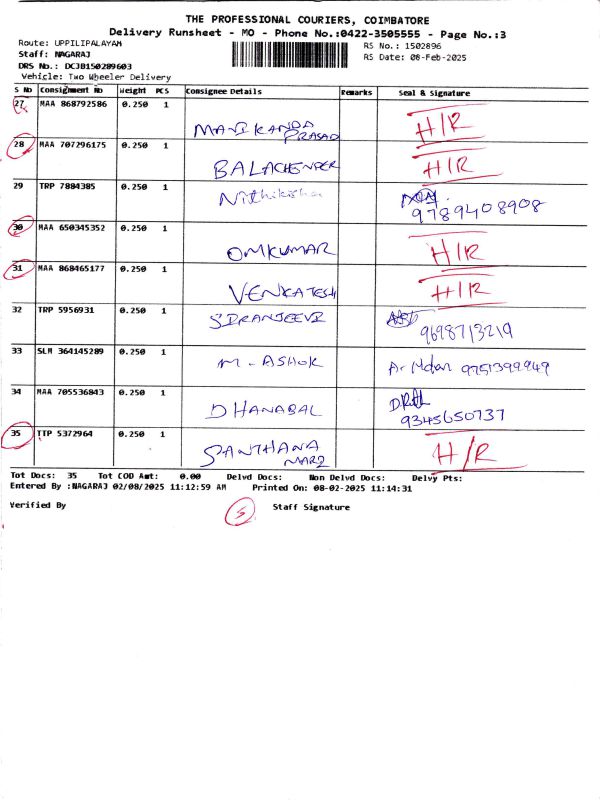 THE PROFESSIONAL COURIERS, COIMBATORE
Delivery Runsheet - MO - Phone No.:0422-3505555 - Page No.:3
Route: UPPILIPALAYAM
RS No.: 1502896
Staff: NAGARAJ
RS Date: 08-Feb-2025
DRS No.: DCJB150289603
Vehicle: Two Wheeler Delivery
S No Consignment No Weight PCS Consignee Details Remarks Seal & Signature
27 MAA 868792586 0.250 1
MANIKANDA PRASAD H/R
28 MAA 707296175 0.250 1
BALACHENDER H/R
29 TRP 7884385 0.250 1
Nithikisha 9789408908
30 MAA 650345352 0.250 1
OMKUMAR H/R
31 MAA 868465177 0.250 1
VENKATESH H/R
32 TRP 5956931 0.250 1
SIRANJEEVI 9698713219
33 SLM 364145289 0.250 1
M. ASHOK 9751399949
34 MAA 705536843 0.250 1
DHANABAL 9345650737
35 TTP 5372964 0.250 1
SANTHANA MARI H/R
Tot Docs: 35 Tot COD Amt: 0.00 Delvd Docs: Non Delvd Docs: Delvy Pts:
Entered By :NAGARAJ 02/08/2025 11:12:59 AM Printed On: 08-02-2025 11:14:31
Verified By 5 Staff Signature